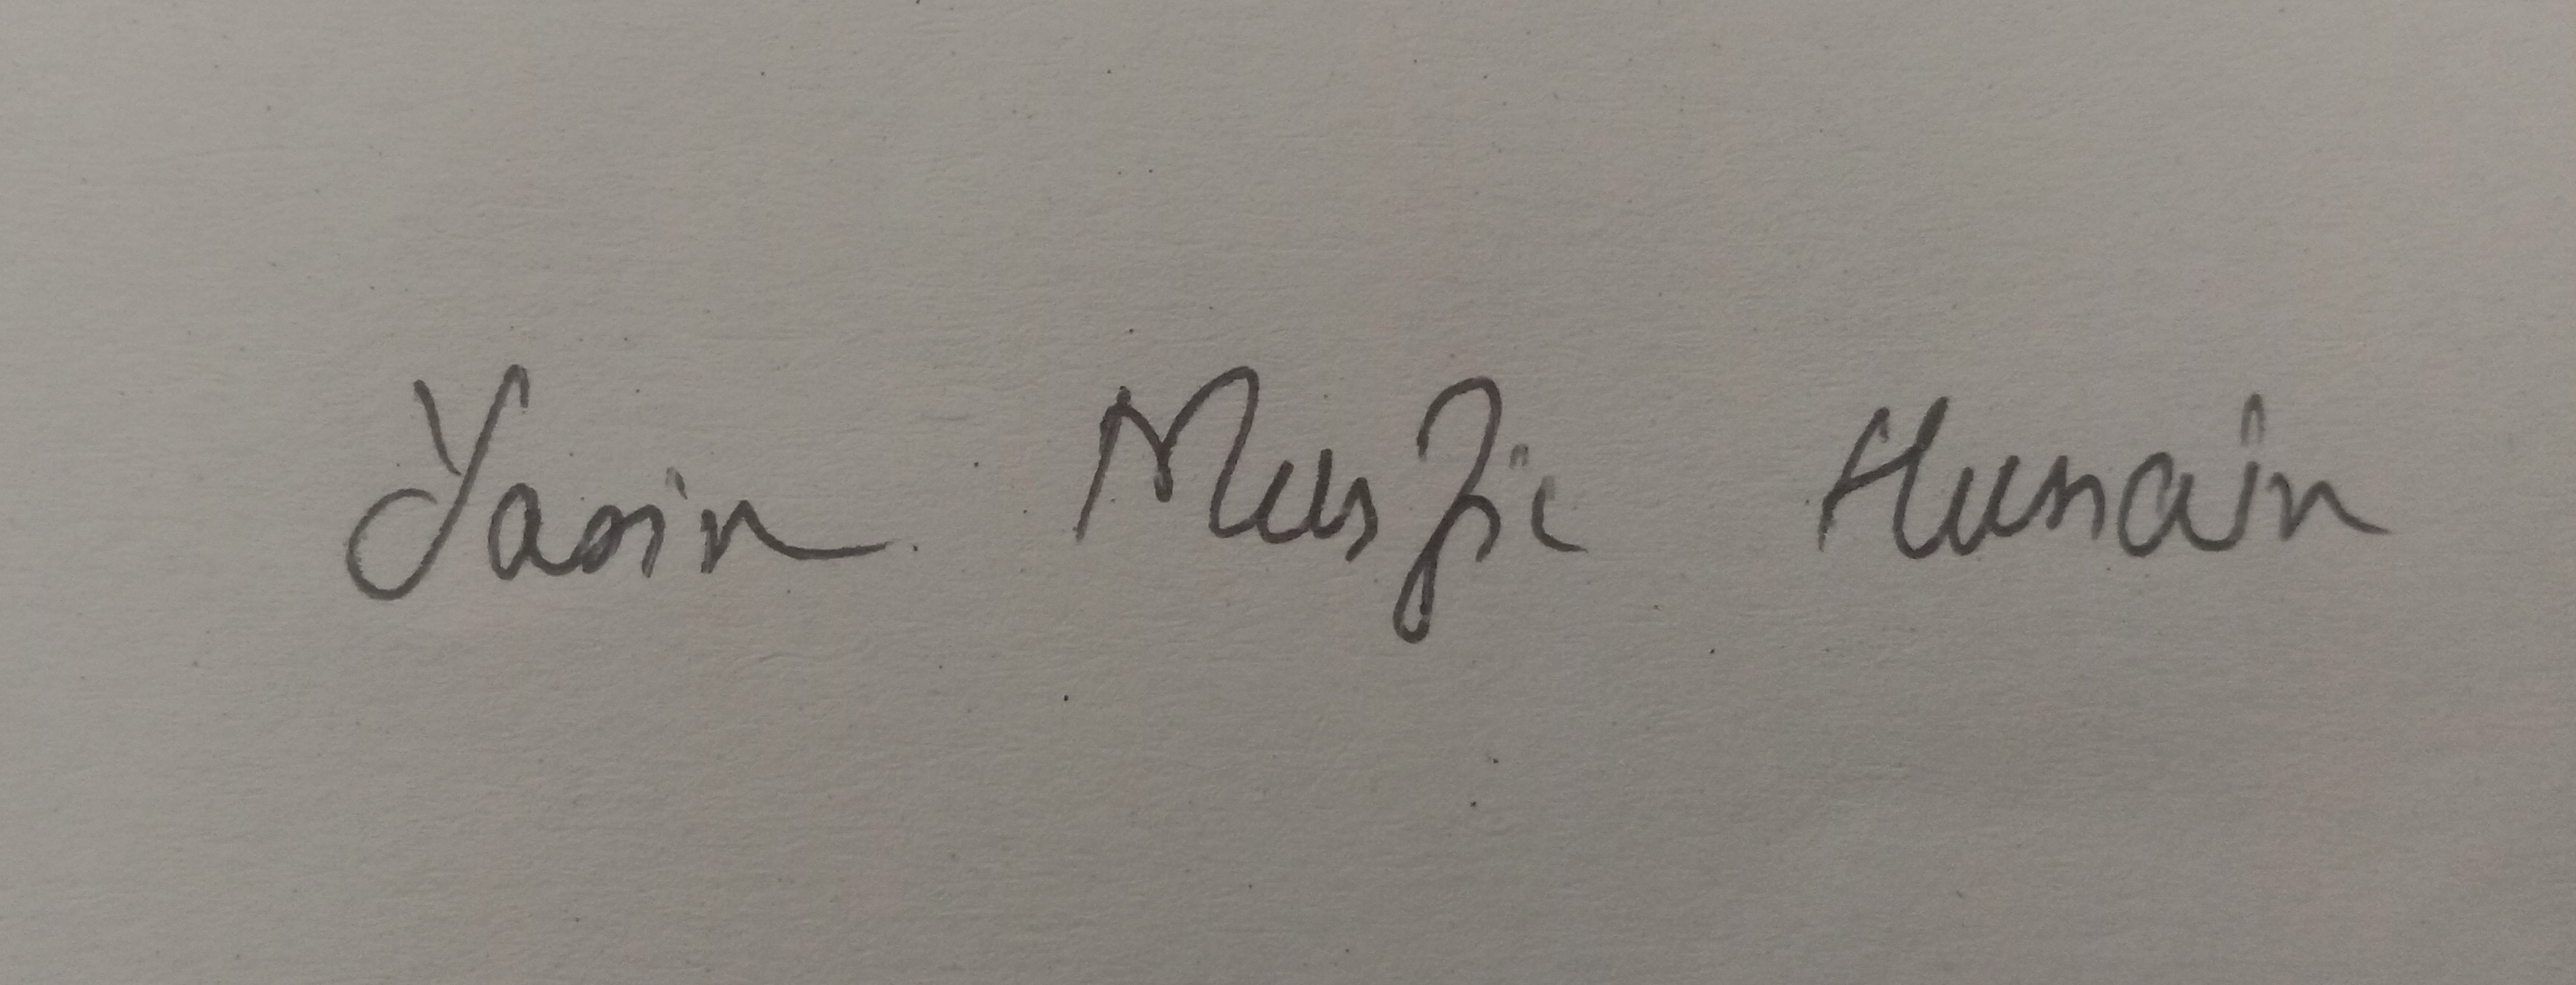 Yasin Musfic Husain